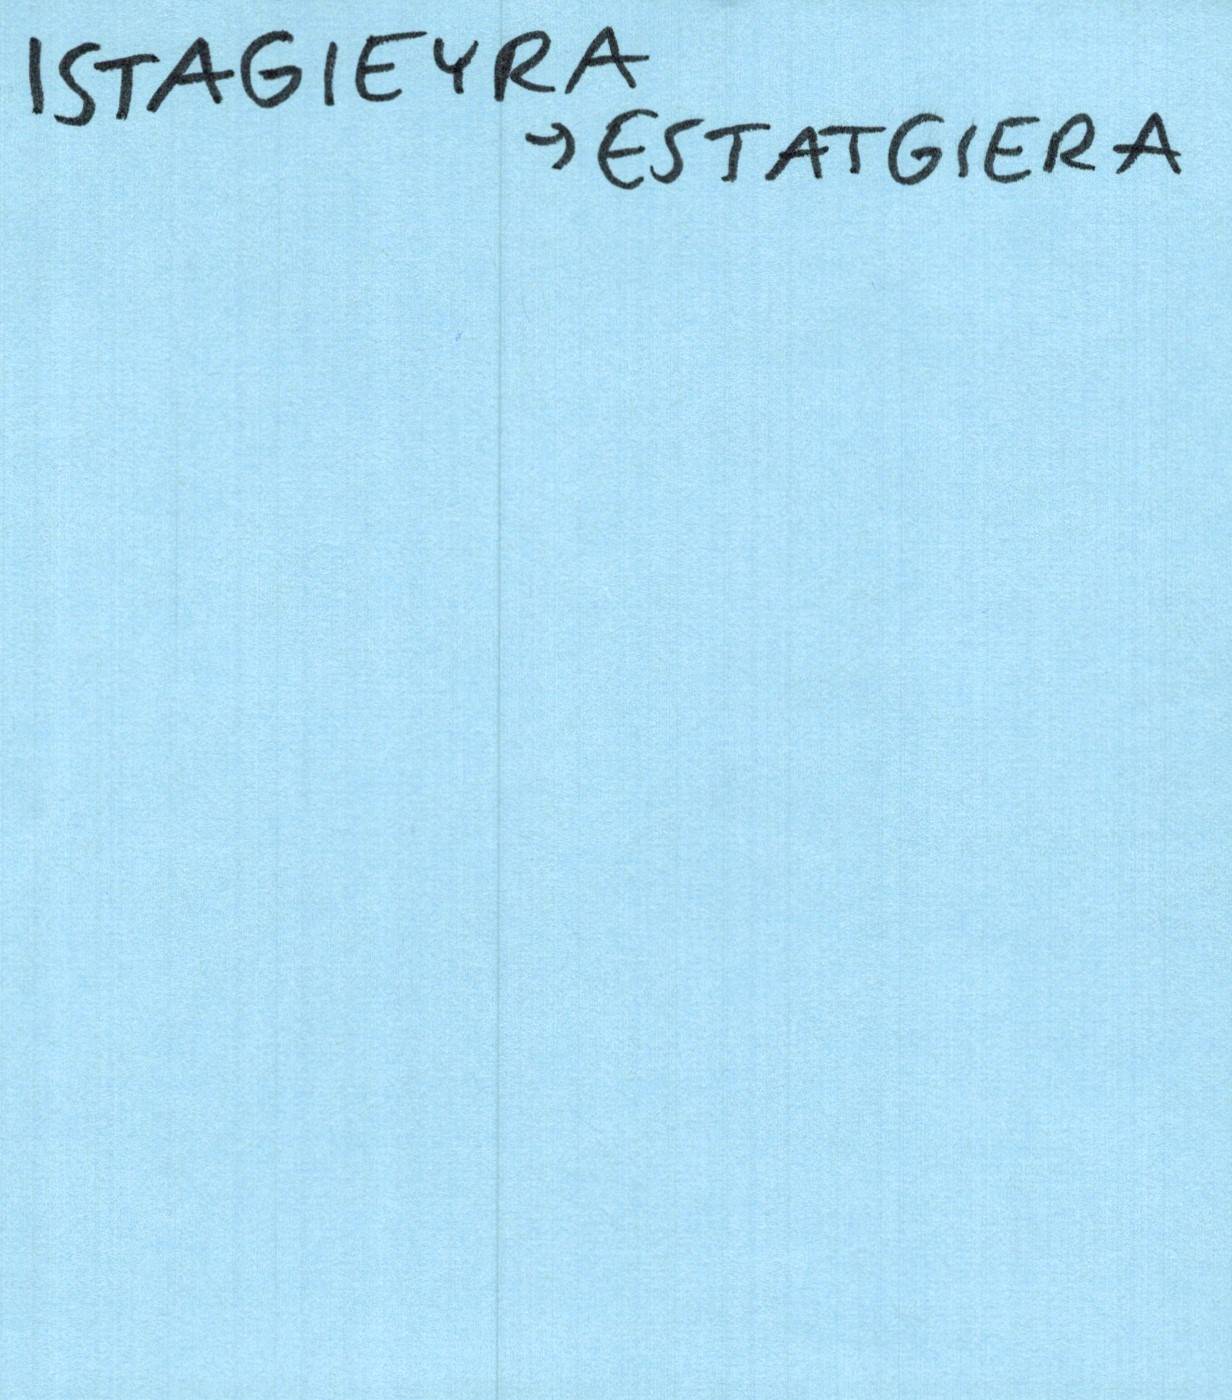 ISTAGIEYRA
→ ESTATGIERA